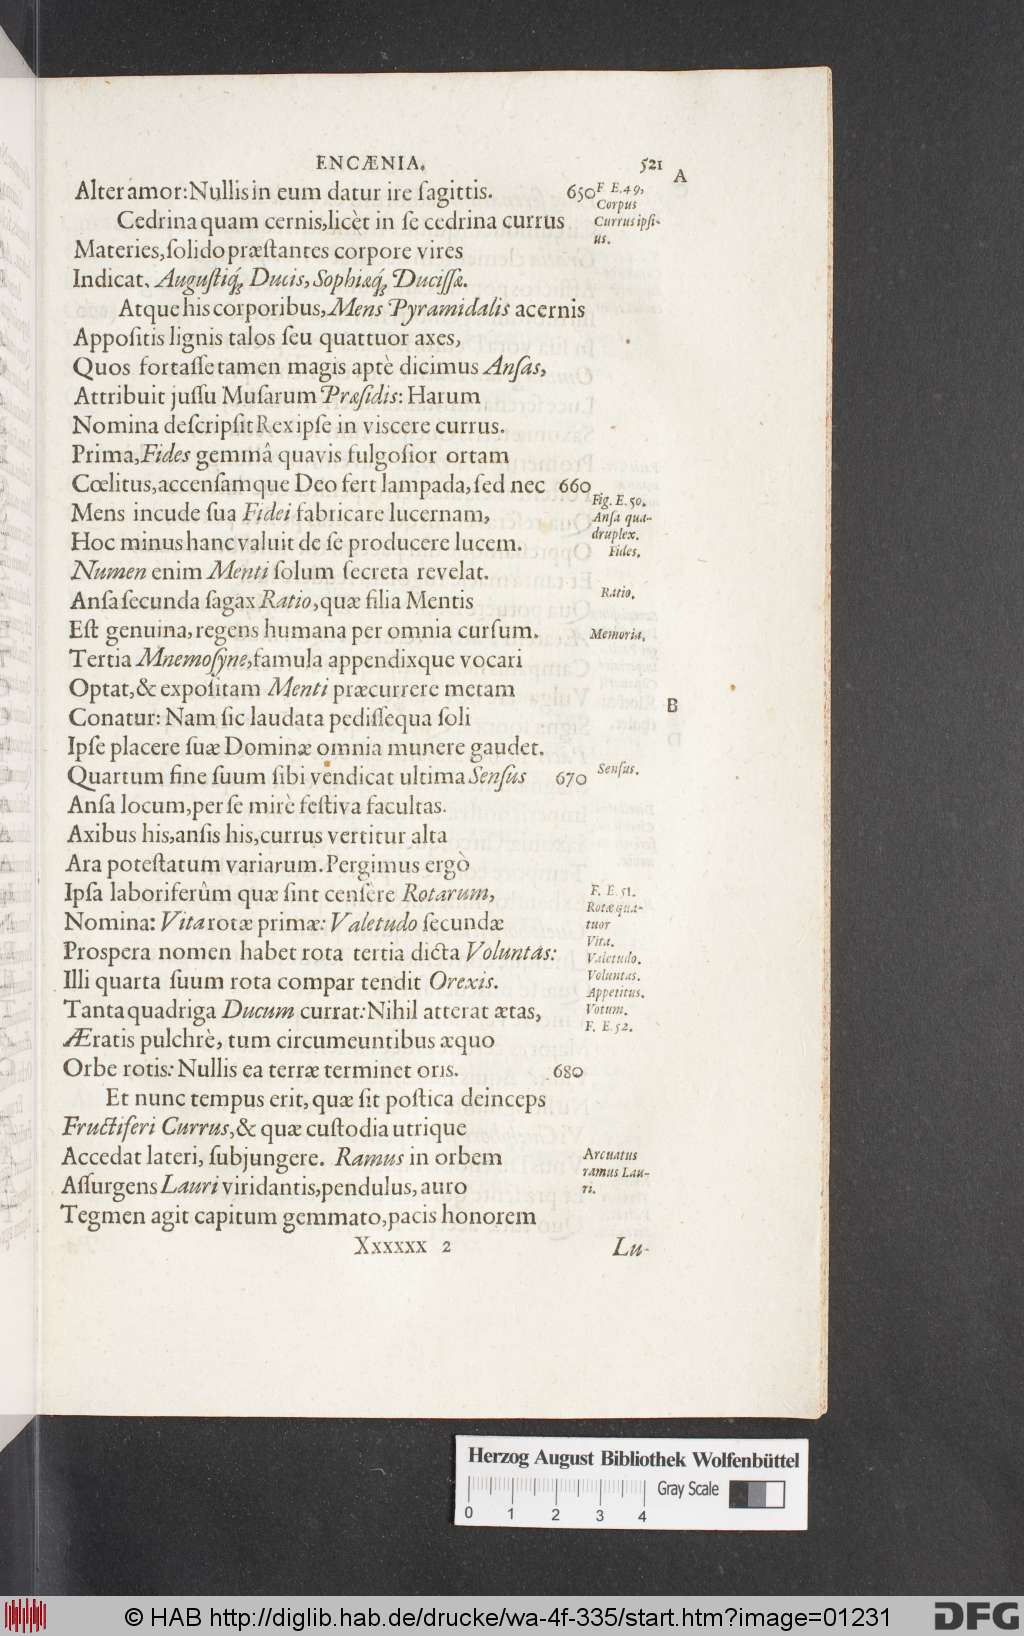 ENCÆNIA. 521
A
Alter amor: Nullis in eum datur ire ſagittis. 650 F. E. 49,
Corpus
Cedrina quam cernis, licèt in ſe cedrina currus Currus ipſi-
us.
Materies, ſolido præſtantes corpore vires
Indicat, Auguſtiq́; Ducis, Sophiæq́; Duciſſæ.
Atque his corporibus, Mens Pyramidalis acernis
Appoſitis lignis talos ſeu quattuor axes,
Quos fortaſſe tamen magis aptè dicimus Anſas,
Attribuit juſſu Muſarum Præſidis: Harum
Nomina deſcripſit Rex ipſe in viscere currus.
Prima, Fides gemmâ quavis fulgoſior ortam
Cœlitus, accenſamque Deo fert lampada, ſed nec 660
Fig. E. 50.
Mens incude ſua Fidei fabricare lucernam, Anſa qua-
druplex.
Hoc minus hanc valuit de ſe producere lucem. Fides.
Numen enim Menti ſolum ſecreta revelat.
Anſa ſecunda ſagax Ratio, quæ filia Mentis Ratio.
Eſt genuina, regens humana per omnia curſum. Memoria.
Tertia Mnemoſyne, famula appendixque vocari
Optat, & expoſitam Menti præcurrere metam
Conatur: Nam ſic laudata pediſſequa ſoli
B
Ipſe placere ſuæ Dominæ omnia munere gaudet.
Quartum fine ſuum ſibi vendicat ultima Senſus 670 Senſus.
Anſa locum, per ſe mirè feſtiva facultas.
Axibus his, anſis his, currus vertitur alta
Ara poteſtatum variarum. Pergimus ergò
Ipſa laboriferûm quæ ſint cenſère Rotarum, F. E. 51.
Rotæ qua-
Nomina: Vita rotæ primæ: Valetudo ſecundæ tuor
Vita.
Proſpera nomen habet rota tertia dicta Voluntas: Valetudo.
Voluntas.
Illi quarta ſuum rota compar tendit Orexis. Appetitus.
Tanta quadriga Ducum currat: Nihil atterat ætas, Votum.
F. E. 52.
Æratis pulchrè, tum circumeuntibus æquo
Orbe rotis: Nullis ea terræ terminet oris. 680
Et nunc tempus erit, quæ ſit poſtica deinceps
Fructiferi Currus, & quæ cuſtodia utrique
Accedat lateri, ſubjungere. Ramus in orbem Arcuatus
ramus Lau-
Aſſurgens Lauri viridantis, pendulus, auro ri.
Tegmen agit capitum gemmato, pacis honorem
Xxxxxx 2 Lu-
Herzog August Bibliothek Wolfenbüttel
Gray Scale
0 1 2 3 4
© HAB http://diglib.hab.de/drucke/wa-4f-335/start.htm?image=01231
DFG